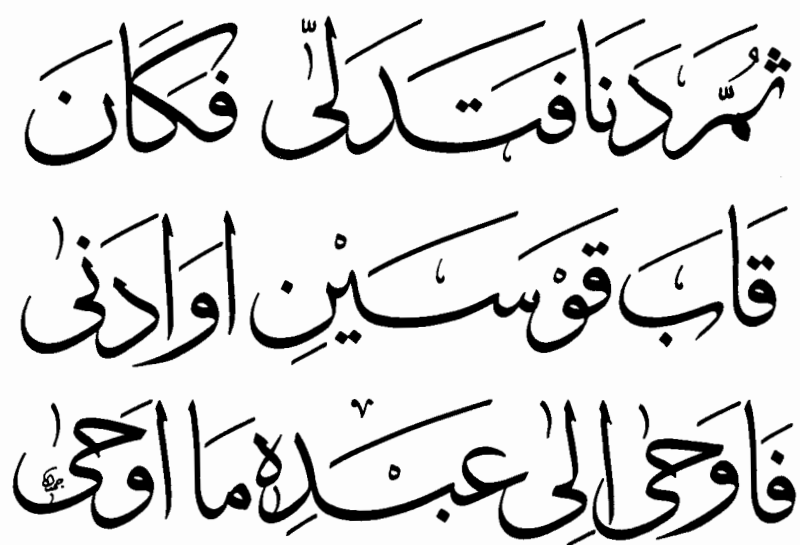 ثُمَّ دَنَا فَتَدَلّٰى فَكَانَ
قَابَ قَوْسَيْنِ اَوْ اَدْنٰى
فَاَوْحٰى اِلٰى عَبْدِهٖ مَا اَوْحٰى